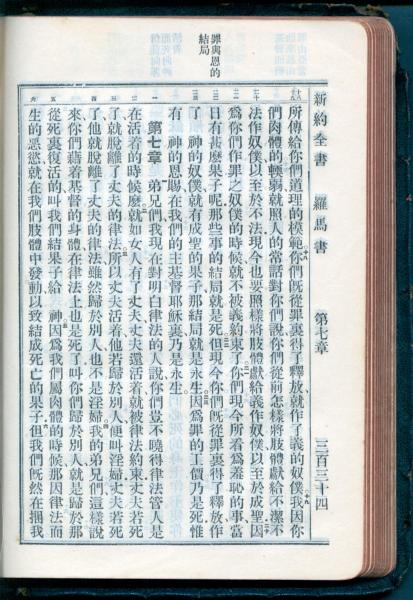 新約全書 羅馬書 第七章 三百三十四
罪與恩的
結局
所傳給你們道理的模範你們旣從罪裏得了釋放就作了義的奴僕我因你
們肉體的輭弱就照人的常話對你們說你們從前怎樣將肢體獻給不潔不
法作奴僕以至於不法現今也要照樣將肢體獻給義作奴僕以至於成聖因
爲你們作罪之奴僕的時候就不被義約束了你們現今所看爲羞恥的事當
日有甚麽果子呢那些事的結局就是死但現今你們旣從罪裏得了釋放作
了 神的奴僕就有成聖的果子那結局就是永生因爲罪的工價乃是死惟
有 神的恩賜在我們的主基督耶穌裏乃是永生
第七章 弟兄們我現在對明白律法的人說你們豈不曉得律法管人是
在活着的時候麽就如女人有了丈夫丈夫還活着就被律法約束丈夫若死
了就脫離了丈夫的律法所以丈夫活着他若歸於別人便叫淫婦丈夫若死
了他就脫離了丈夫的律法雖然歸於別人也不是淫婦我的弟兄們這樣說
來你們藉着基督的身體在律法上也是死了叫你們歸於別人就是歸於那
從死裏復活的叫我們結果子給 神因爲我們屬肉體的時候那因律法而
生的惡慾就在我們肢體中發動以致結成死亡的果子但我們旣然在捆我